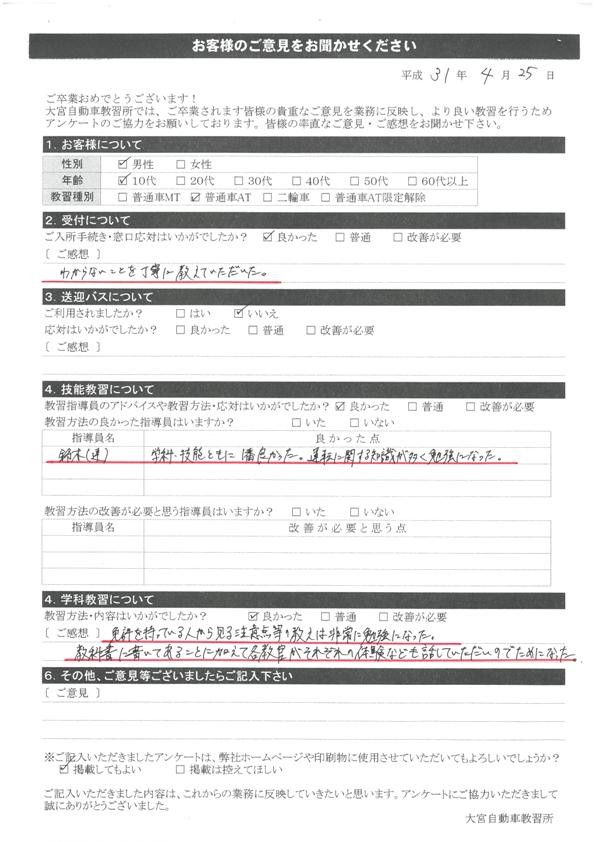 お客様のご意見をお聞かせください
平成 31 年 4 月 25 日
ご卒業おめでとうございます！
大宮自動車教習所では、ご卒業されます皆様の貴重なご意見を業務に反映し、より良い教習を行うため
アンケートのご協力をお願いしております。皆様の率直なご意見・ご感想をお聞かせ下さい。
1. お客様について
性別 ☑男性 □女性
年齢 ☑10代 □20代 □30代 □40代 □50代 □60代以上
教習種別 □普通車MT ☑普通車AT □二輪車 □普通車AT限定解除
2. 受付について
ご入所手続き・窓口応対はいかがでしたか？ ☑良かった □普通 □改善が必要
[ ご感想 ]
わからないことを丁寧に教えていただいた。
3. 送迎バスについて
ご利用されましたか？ □はい ☑いいえ
応対はいかがでしたか？ □良かった □普通 □改善が必要
[ ご感想 ]
4. 技能教習について
教習指導員のアドバイスや教習方法・応対はいかがでしたか？ ☑良かった □普通 □改善が必要
教習方法の良かった指導員はいますか？ □いた □いない
指導員名 良かった点
鈴木(進) 学科・技能ともに1番良かった。運転に関する知識が多く勉強になった。
教習方法の改善が必要と思う指導員はいますか？ □いた □いない
指導員名 改善が必要と思う点
4. 学科教習について
教習方法・内容はいかがでしたか？ ☑良かった □普通 □改善が必要
[ ご感想 ] 免許を持っている人から見る注意点等の教えは非常に勉強になった。
教科書に書いてあることに加えて各教官がそれぞれの体験なども話していただいのでためになった
6. その他、ご意見等ございましたらご記入下さい
[ ご意見 ]
※ご記入いただきましたアンケートは、弊社ホームページや印刷物に使用させていただいてもよろしいでしょうか？
☑掲載してもよい □掲載は控えてほしい
ご記入いただきました内容は、これからの業務に反映していきたいと思います。アンケートにご協力いただきまして
誠にありがとうございました。
大宮自動車教習所